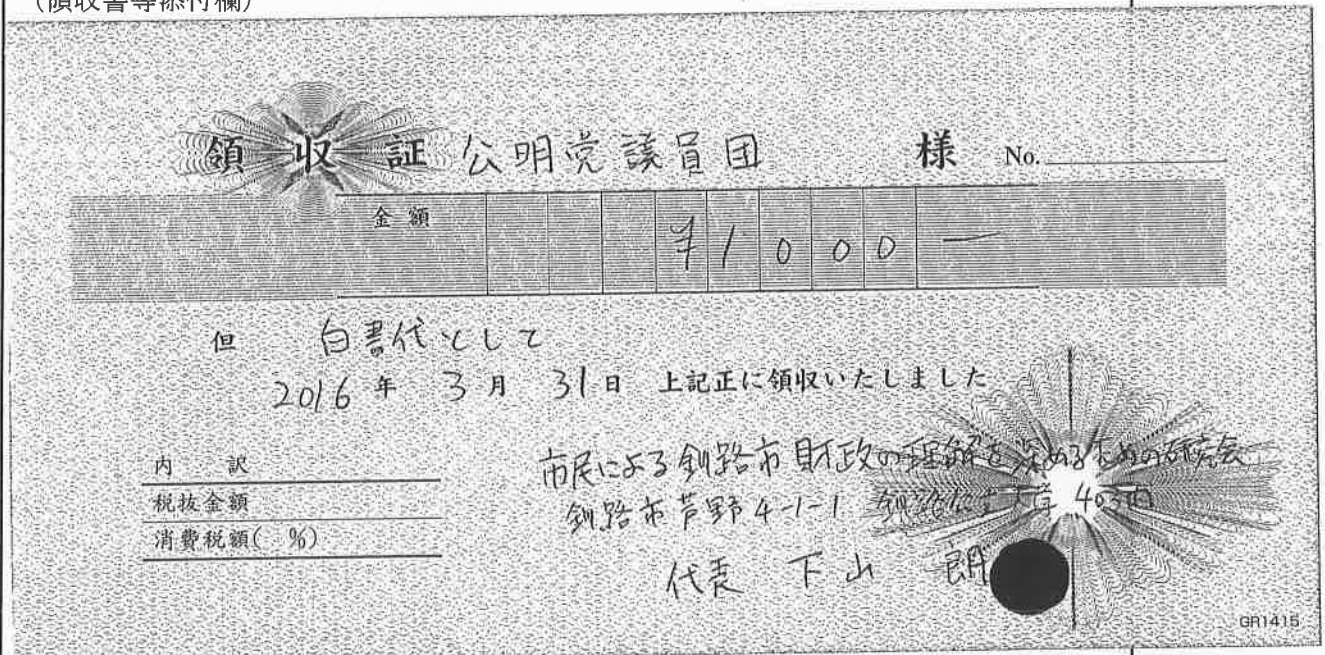 (領収書等添付欄)
領収証 公明党議員団 様 No.
金額 ¥1000―
但 白書代として
2016年 3月 31日 上記正に領収いたしました
内訳
税抜金額
消費税額( %)
市民による釧路市財政の理解を深めるための研究会
釧路市芦野4-1-1 釧路公立大 403内
代表 下山 朗
GR1415